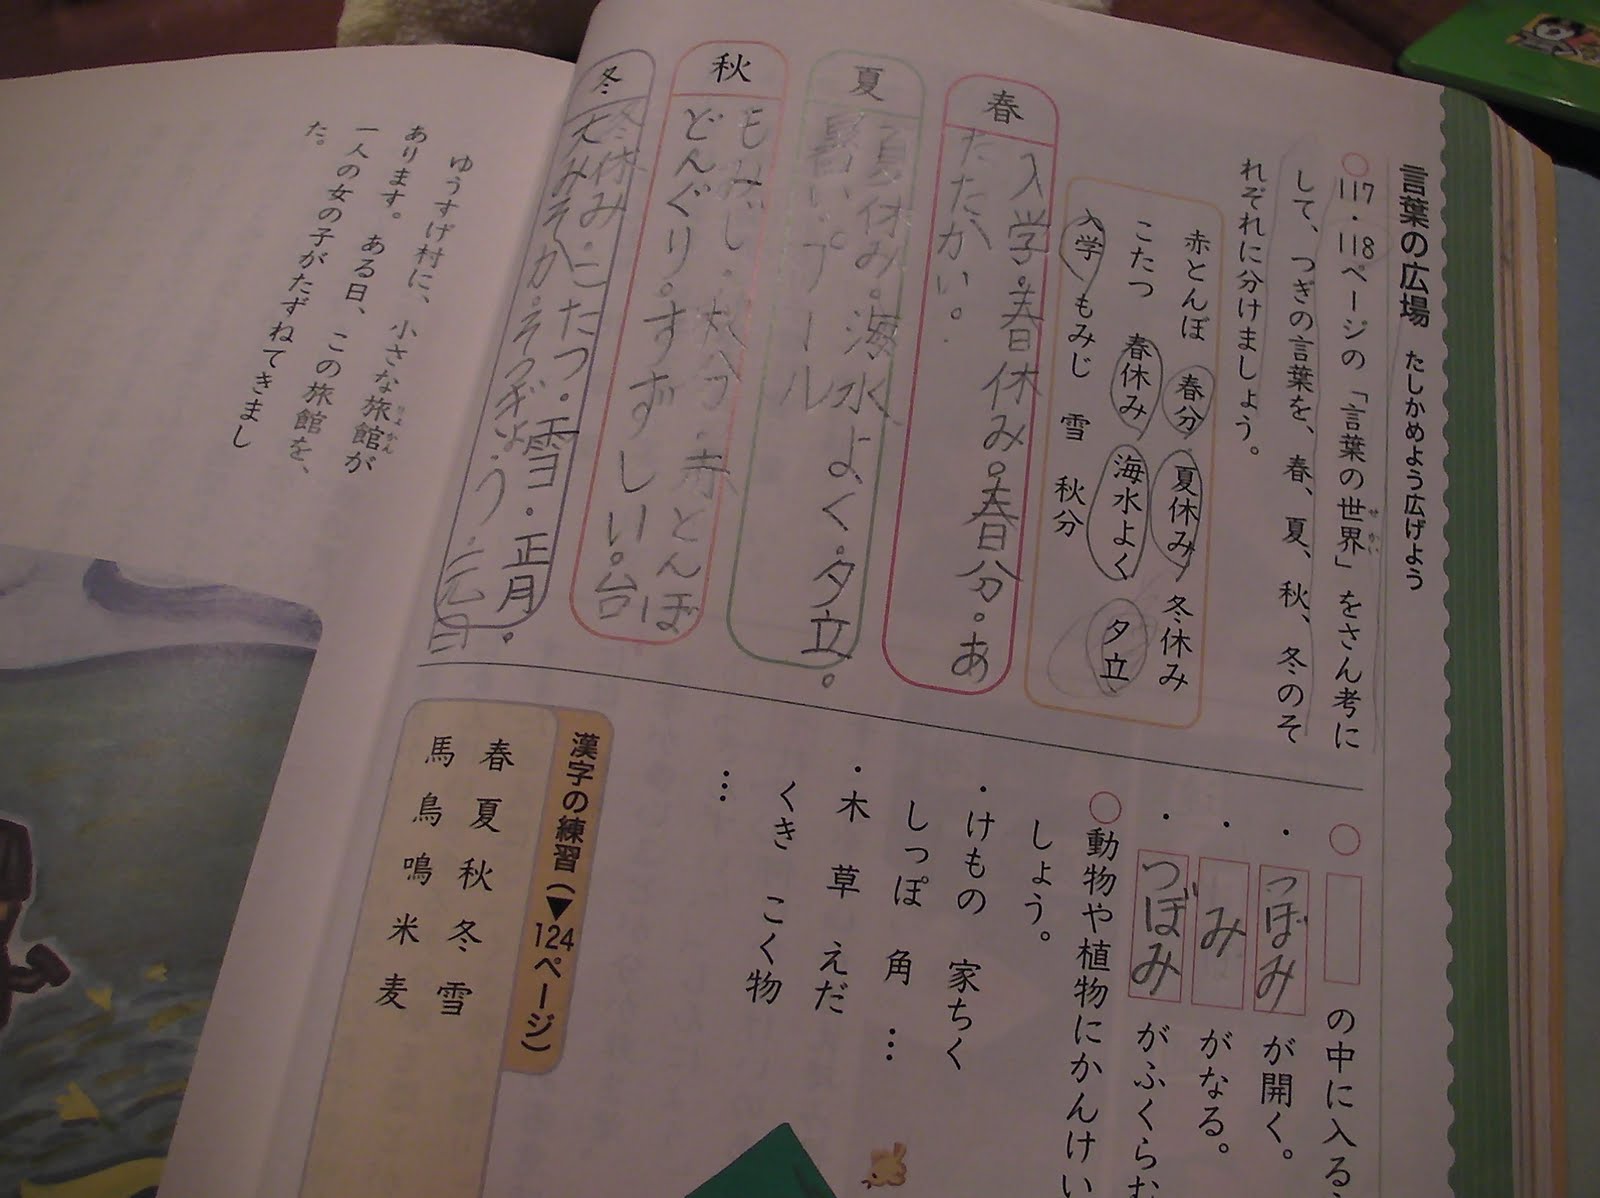 言葉の広場 たしかめよう広げよう
○117・118ページの「言葉の世界」をさん考に
せかい
して、つぎの言葉を、春、夏、秋、冬のそ
れぞれに分けましょう。
赤とんぼ 春分 夏休み 冬休み
こたつ 春休み 海水よく 夕立
入学 もみじ 雪 秋分
春
入学。春休み。春分。あ
たたかい。
夏
夏休み。海水よく。夕立。
暑い。プール
秋
もみじ・秋分・赤とんぼ
どんぐり。すずしい。台
冬
冬休み・こたつ・雪・正月。
大みそか。そつぎょう・元日
○□の中に入る
・つぼみが開く。
・みがなる。
・つぼみがふくらむ
○動物や植物にかんけい
しょう。
・けもの 家ちく
しっぽ 角 …
・木 草 えだ
くき こく物
…
漢字の練習(▼124ページ)
春 夏 秋 冬 雪
馬 鳥 鳴 米 麦
ゆうすげ村に、小さな旅館が
りょかん
あります。ある日、この旅館を、
一人の女の子がたずねてきまし
た。